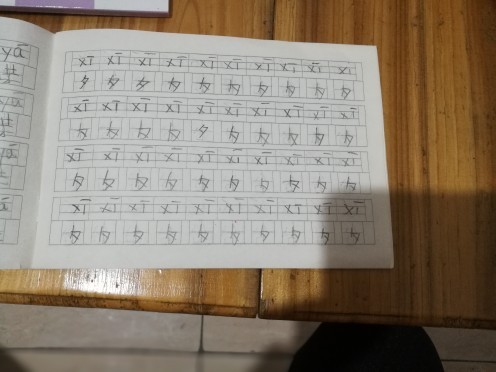 yá
xī xī xī xī xī xī xī xī xī xī
夕 夕 夕 夕 夕 夕 夕 夕 夕 夕
xī xī xī xī xī xī xī xī xī xī
夕 夕 夕 夕 夕 夕 夕 夕 夕 夕
xī xī xī xī xī xī xī xī xī xī
夕 夕 夕 夕 夕 夕 夕 夕 夕 夕
xī xī xī xī xī xī xī xī xī xī
夕 夕 夕 夕 夕 夕 夕 夕 夕 夕